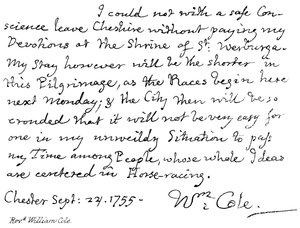 I could not with a safe Con-
science leave Cheshire without paying my
Devotions at the Shrine of St. Werburga.
My stay however will be the shorter in
this Pilgrimage, as the Races begin here
next Monday; & the City then will be so
crouded that it will not be very easy for
one in my unweildy Situation to pass
my Time among People, whose whole Ideas
are centered in Horse-racing.
Chester Sept: 27. 1755-
Wm Cole.
Revd. William Cole.